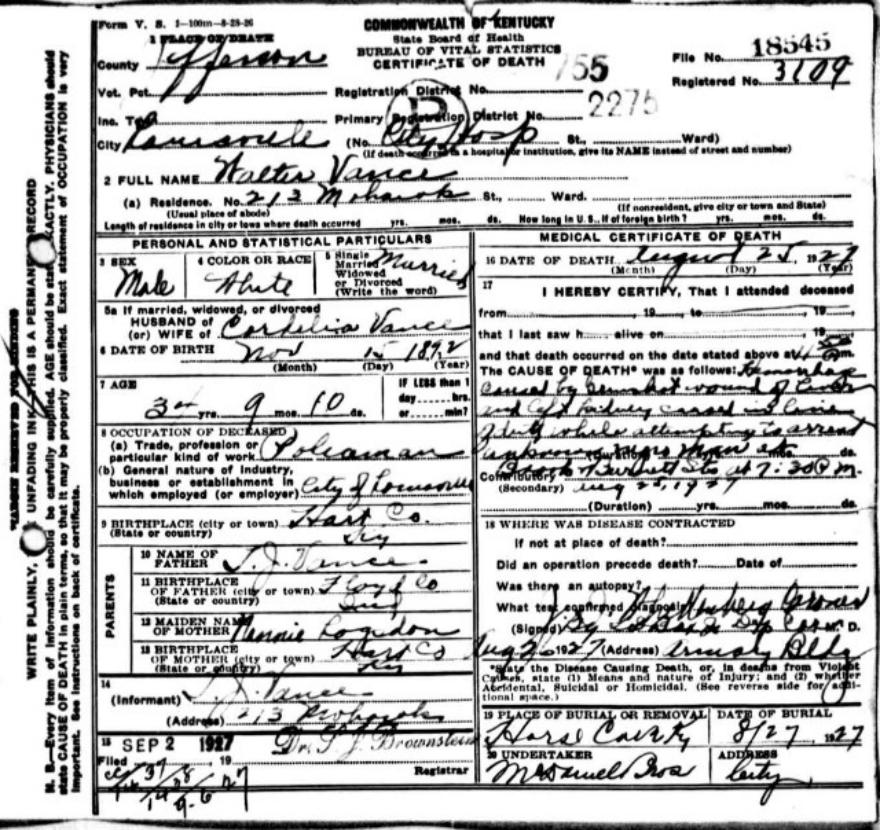 Form V. S. 1-100m-8-28-26
COMMONWEALTH OF KENTUCKY
State Board of Health
BUREAU OF VITAL STATISTICS
CERTIFICATE OF DEATH
File No. 18545
Registered No. 3109
1 PLACE OF DEATH
County Jefferson
Vot. Pct. Registration District No. 755
Inc. Primary Registration District No. 2275
City Louisville (No. City Hosp St., Ward)
(If death occurred in a hospital or institution, give its NAME instead of street and number)
2 FULL NAME Walter Vance
(a) Residence. No. 213 Mohawk St., Ward.
(Usual place of abode) (If nonresident, give city or town and State)
Length of residence in city or town where death occurred yrs. mos. ds. How long in U. S., if of foreign birth? yrs. mos. ds.
PERSONAL AND STATISTICAL PARTICULARS
3 SEX 4 COLOR OR RACE 5 Single Married Widowed or Divorced (Write the word)
Male White Married
5a If married, widowed, or divorced
HUSBAND of
(or) WIFE of Cordelia Vance
6 DATE OF BIRTH Nov 15 1892
(Month) (Day) (Year)
7 AGE IF LESS than 1
34 yrs. 9 mos. 10 ds. day hrs. or min?
8 OCCUPATION OF DECEASED
(a) Trade, profession or particular kind of work Policeman
(b) General nature of industry, business or establishment in which employed (or employer) City of Louisville
9 BIRTHPLACE (city or town) Hart Co.
(State or country) Ky
PARENTS
10 NAME OF FATHER T. J. Vance
11 BIRTHPLACE OF FATHER (city or town) Floyd Co
(State or country)
12 MAIDEN NAME OF MOTHER Nannie Logsdon
13 BIRTHPLACE OF MOTHER (city or town) Hart Co
(State or country) Ky
14
(Informant) T. J. Vance
(Address) 213 Mohawk
15 SEP 2 1927 Dr. S. J. Brownstein
Filed 19 Registrar
MEDICAL CERTIFICATE OF DEATH
16 DATE OF DEATH August 25, 1927
(Month) (Day) (Year)
17 I HEREBY CERTIFY, That I attended deceased
from 19 to 19
that I last saw h alive on 19
and that death occurred on the date stated above at 11 m.
The CAUSE OF DEATH* was as follows: Hemorrhage
caused by Gunshot wound of Liver
and left kidney caused in line
of duty while attempting to arrest
unknown man at
Brook & Burnett Sts at 7:30 P.M.
Contributory Aug 25, 1927
(Secondary)
(Duration) yrs. mos. ds.
18 WHERE WAS DISEASE CONTRACTED
If not at place of death?
Did an operation precede death? Date of
Was there an autopsy?
What test confirmed diagnosis?
(Signed) Coroner
By Dep Cor M. D.
Aug 26 1927 (Address) Armory Bldg
*State the Disease Causing Death, or, in deaths from Violent
Causes, state (1) Means and nature of Injury; and (2) whether
Accidental, Suicidal or Homicidal. (See reverse side for additional space.)
19 PLACE OF BURIAL OR REMOVAL DATE OF BURIAL
Horse Cave Ky 8/27 1927
20 UNDERTAKER ADDRESS
McDaniel Bros City
WRITE PLAINLY, UNFADING INK—THIS IS A PERMANENT RECORD
N. B.—Every item of information should be carefully supplied. AGE should be stated EXACTLY. PHYSICIANS should
state CAUSE OF DEATH in plain terms, so that it may be properly classified. Exact statement of OCCUPATION is very
important. See instructions on back of certificate.